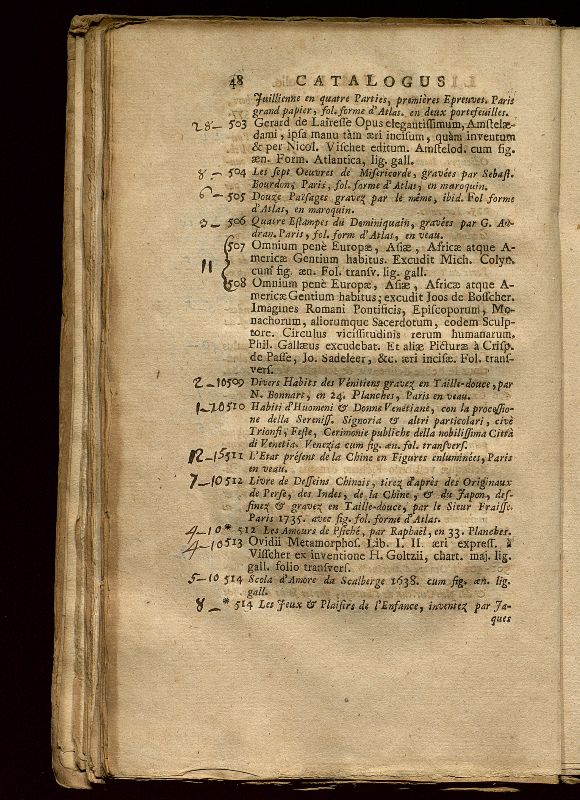 48 CATALOGUS
Juillienne en quatre Parties, premières Epreuves. Paris
grand papier, fol. forme d'Atlas. en deux portefeuilles.
28- 503 Gerard de Lairesse Opus elegantissimum, Amstelæ-
dami, ipsa manu tàm æri incisum, quàm inventum
& per Nicol. Visscher editum. Amstelod. cum fig.
æn. Form. Atlantica, lig. gall.
8- 504 Les sept Oeuvres de Misericorde, gravées par Sebast.
Bourdon, Paris, fol. forme d'Atlas, en maroquin.
6- 505 Douze Païsages gravez par le même, ibid. Fol forme
d'Atlas, en maroquin.
3- 506 Quatre Estampes du Dominiquain, gravées par G. Au-
dran. Paris, fol. form d'Atlas, en veau.
507 Omnium penè Europæ, Asiæ, Africæ atque A-
mericæ Gentium habitus. Excudit Mich. Colyn.
11 cum fig. æn. Fol. transv. lig. gall.
508 Omnium penè Europæ, Asiæ, Africæ atque A-
mericæ Gentium habitus; excudit Joos de Bosscher.
Imagines Romani Pontificis, Episcoporum, Mo-
nachorum, aliorumque Sacerdotum, codem Sculp-
tore. Circulus vicissitudinis rerum humanarum,
Phil. Gallæus excudebat. Et aliæ Picturæ à Crisp.
de Passe, Jo. Sadeleer, &c. æri incisæ. Fol. trans-
vers.
2-10 509 Divers Habits des Vénitiens gravez en Taille-douce, par
N. Bonnart, en 24. Planches, Paris en veau.
1-10 510 Habiti d'Huomeni & Donne Venetiane, con la processio-
ne della Sereniss. Signoria & altri particolari, civè
Trionfi, Feste, Cerimonie publiche della nobilissima Città
di Venetia. Venezia cum fig. æn. fol. transvers.
12-15 511 L'Etat présent de la Chine en Figures enluminées, Paris
en veau.
7-10 512 Livre de Desseins Chinois, tirez d'après des Originaux
de Perse, des Indes, de la Chine, & du Japon, des-
sinez & gravez en Taille-douce, par le Sieur Fraisse.
Paris 1735. avec fig. fol. forme d'Atlas.
4-10 * 512 Les Amours de Psiché, par Raphaël, en 33. Planches.
4-10 513 Ovidii Metamorphos. Lib. I. II. æri express. à
Visscher ex inventione H. Goltzii, chart. maj. lig.
gall. folio transvers.
5-10 514 Scola d'Amore da Scalberge 1638. cum fig. æn. lig.
gall.
8- * 514 Les Jeux & Plaisirs de l'Enfance, inventez par Ja-
ques